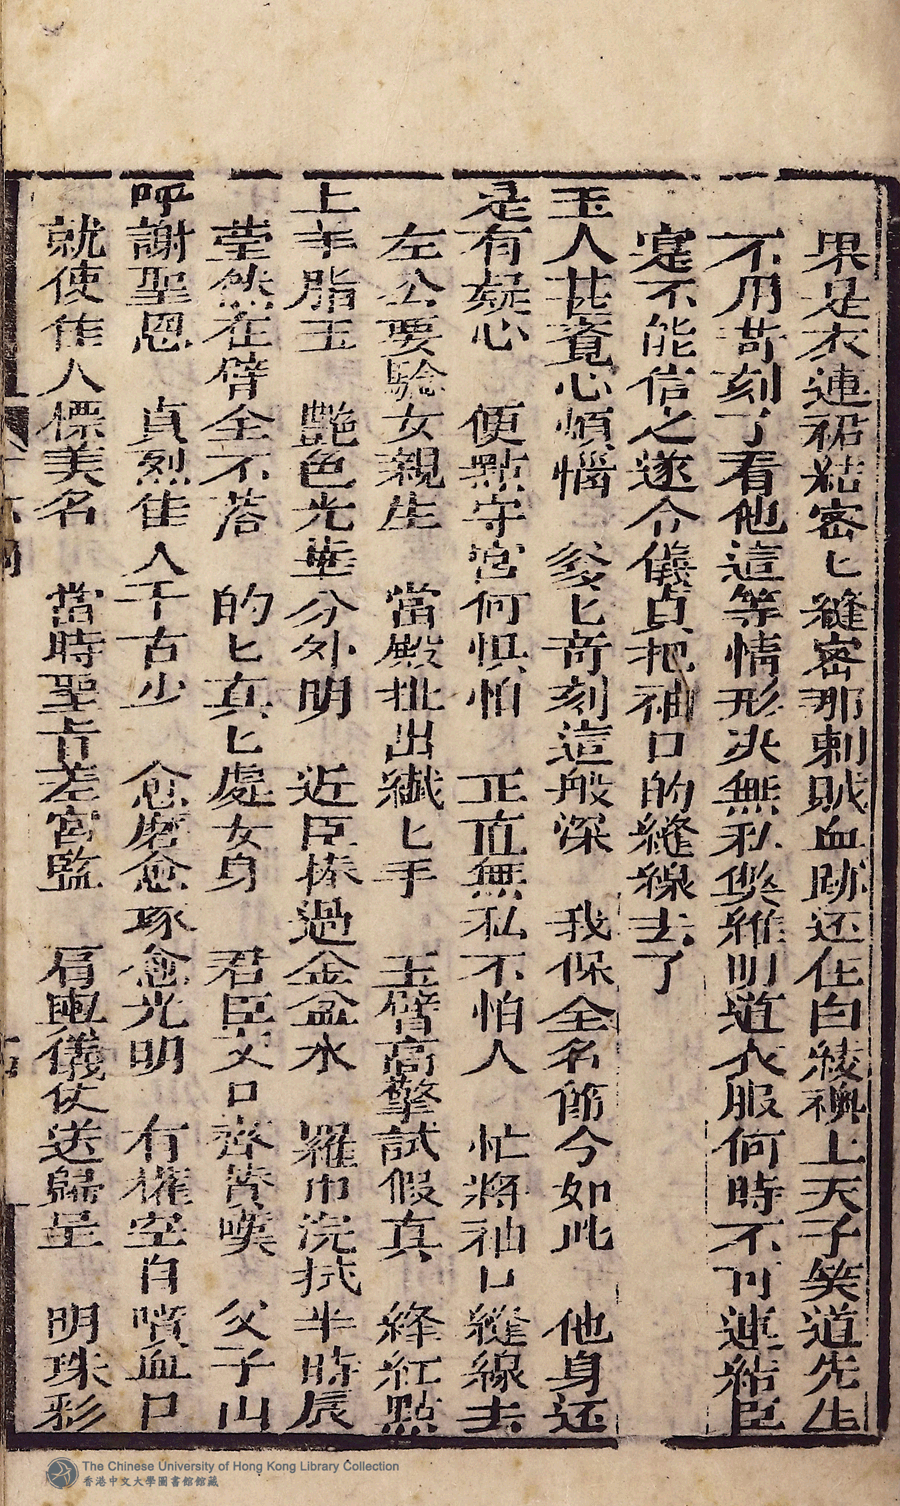 果是衣連裙結密匕縫密那刺賊血跡还在白綾襖上天子笑道先生
不用苛刻了看他這等情形决無私獘維明道衣服何時不可連結臣
寔不能信之遂令儀貞把袖口的縫線去了
玉人甚覺心煩惱　爹匕苛刻這般深　我保全名節今如此　他身还
是有疑心　便點守宮何惧怕　正直無私不怕人　忙將袖口縫線去
左公要驗女親生　當殿扯出纎匕手　玉臂高擎試假真　絳紅點
上羊脂玉　艷色光華分外明　近臣捧過金盆水　羅巾浣拭半時辰
瑩然在臂全不落　的匕真匕處女身　君臣文口齊賛嘆　父子山
呼謝聖恩　貞烈佳人千古少　愈磨愈琢愈光明　有權空自噴血口
就使佳人標美名　當時聖旨差宮監　肩輿儀仗送歸呈　明珠彩
The Chinese University of Hong Kong Library Collection
香港中文大學圖書館館藏